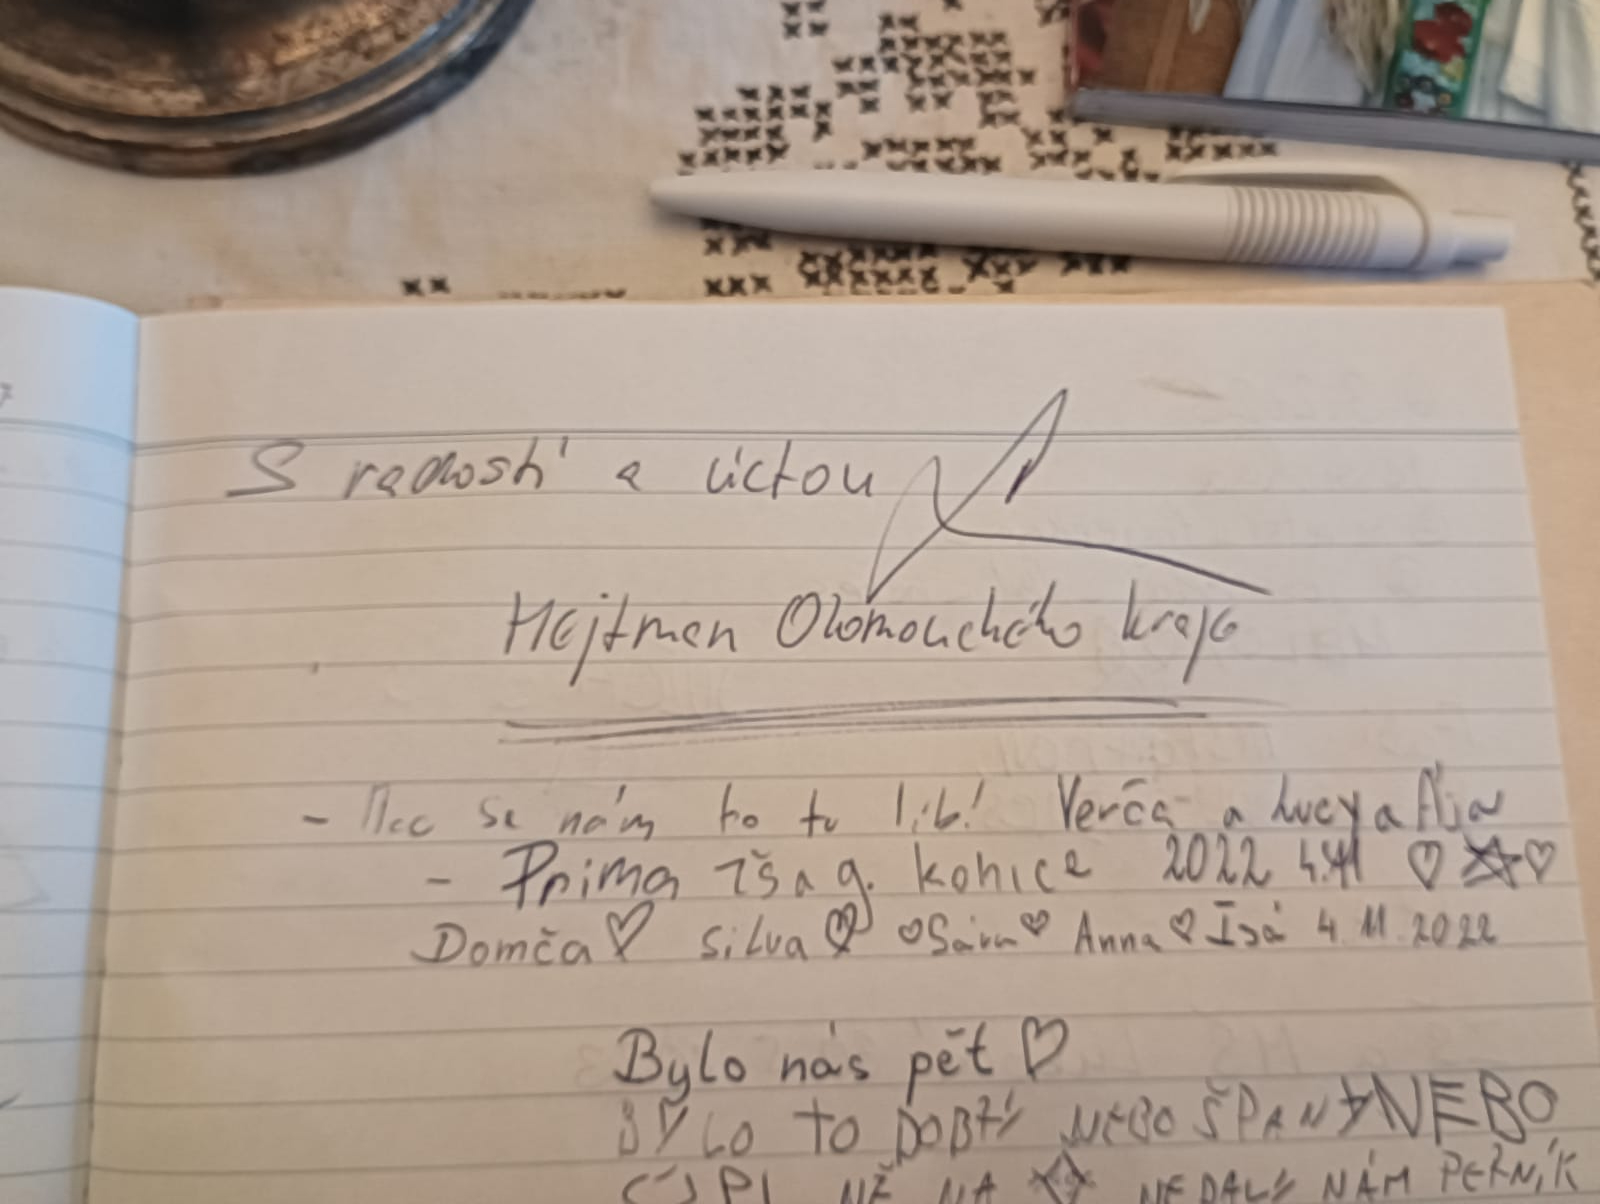 S radostí a úctou
Hejtman Olomouckého kraje
- Moc se nám to tu líb! Verča a Lucy a
- Prima ZŠ a g. konice 2022 4.11 ♡ ☆ ♡
Domča ♡ Silva ♡ ♡ Sára ♡ Anna ♡ Isá 4. 11. 2022
Bylo nás pět ♡
BYLO TO DOBRÝ NEBO ŠPANÝ NEBO
NA NEDALY NÁM PERNÍK